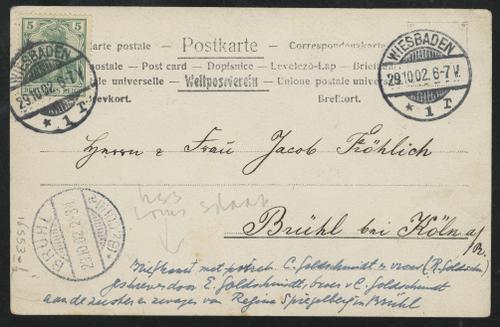 5
WIESBADEN
29.10.02. 6-7 V.
* 1 r
WIESBADEN
29.10.02. 6-7 V.
* 1 r
Carte postale — Postkarte — Correspondenzkarte
postale — Post card — Dopisnice — Levelező-Lap —
universelle — Weltpostverein — Unione postale
Brevkort. Brefkort.
Herrn & Frau Jacob Fröhlich
Brühl bei Köln a/
BRÜHL
29.10.02. 2-3N
Briefkaart met portret C. Goldschmidt en vrouw (R. Goldschm)
geschreven door E. Goldschmidt, broer v. C. Goldschmidt
aan de zuster en zwager van Regina Spiegelberg in Brühl